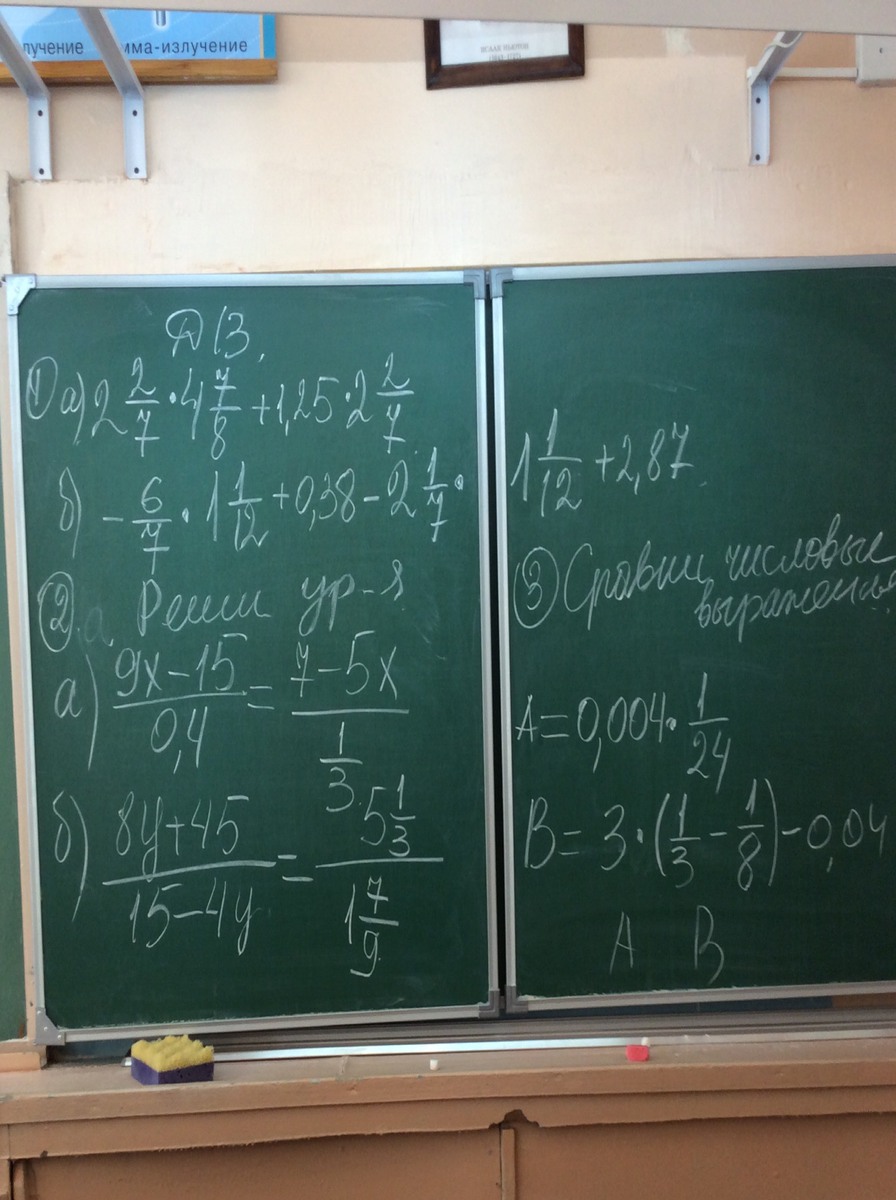 лучение мма-излучение
ИСААК НЬЮТОН
Д/З.
① а) 2 2/7 · 4 7/8 + 1,25 · 2 2/7
б) - 6/7 · 1 1/12 + 0,38 - 2 1/7 ·
② а Реши ур-я
а) (9x - 15)/0,4 = (7 - 5x)/(1/3)
б) (8y + 45)/(15 - 4y) = (5 1/3)/(1 7/9)
1 1/12 + 2,87
③ Сравни числовые
выражения
A = 0,004 · 1/24
B = 3 · (1/3 - 1/8) - 0,04
A B